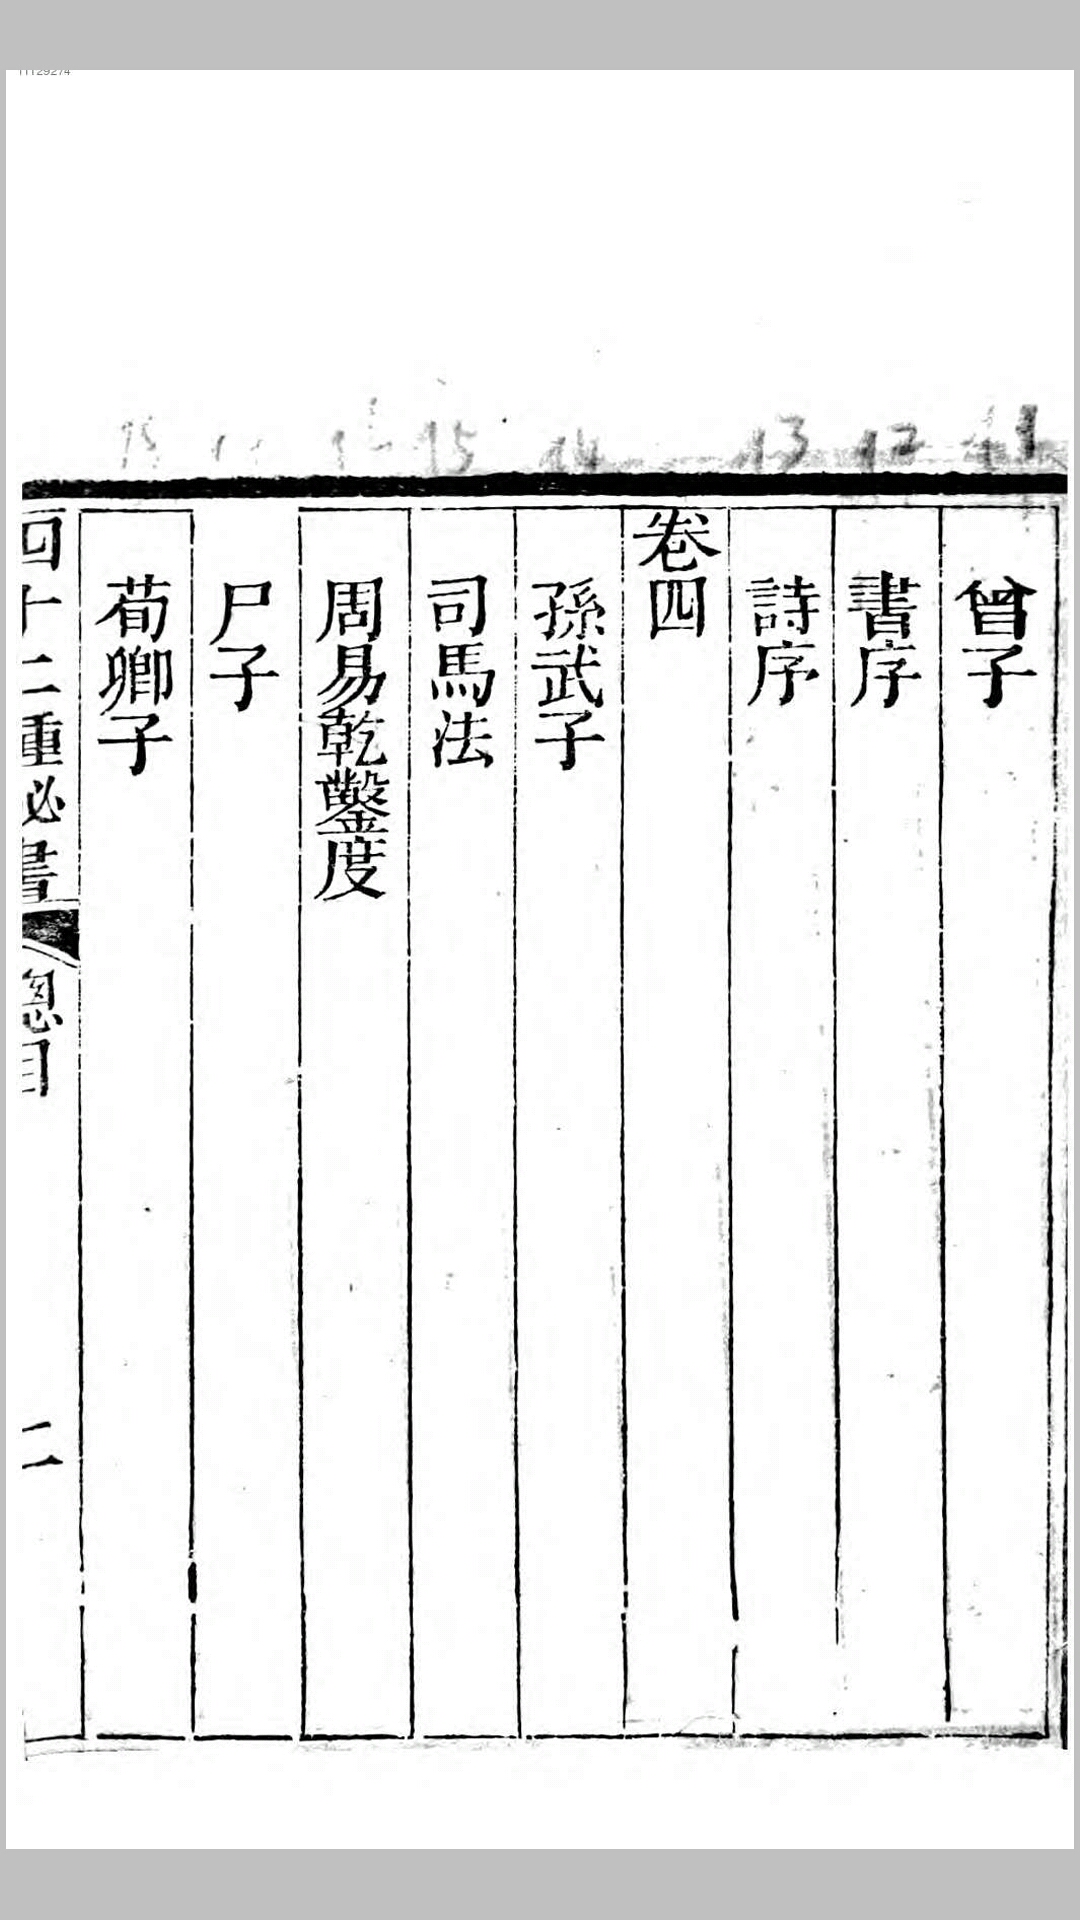 曾子
書序
詩序
卷四
孫武子
司馬法
周易乾鑿度
尸子
荀卿子
四十二種必書
總目
二
11 12 13 14 15